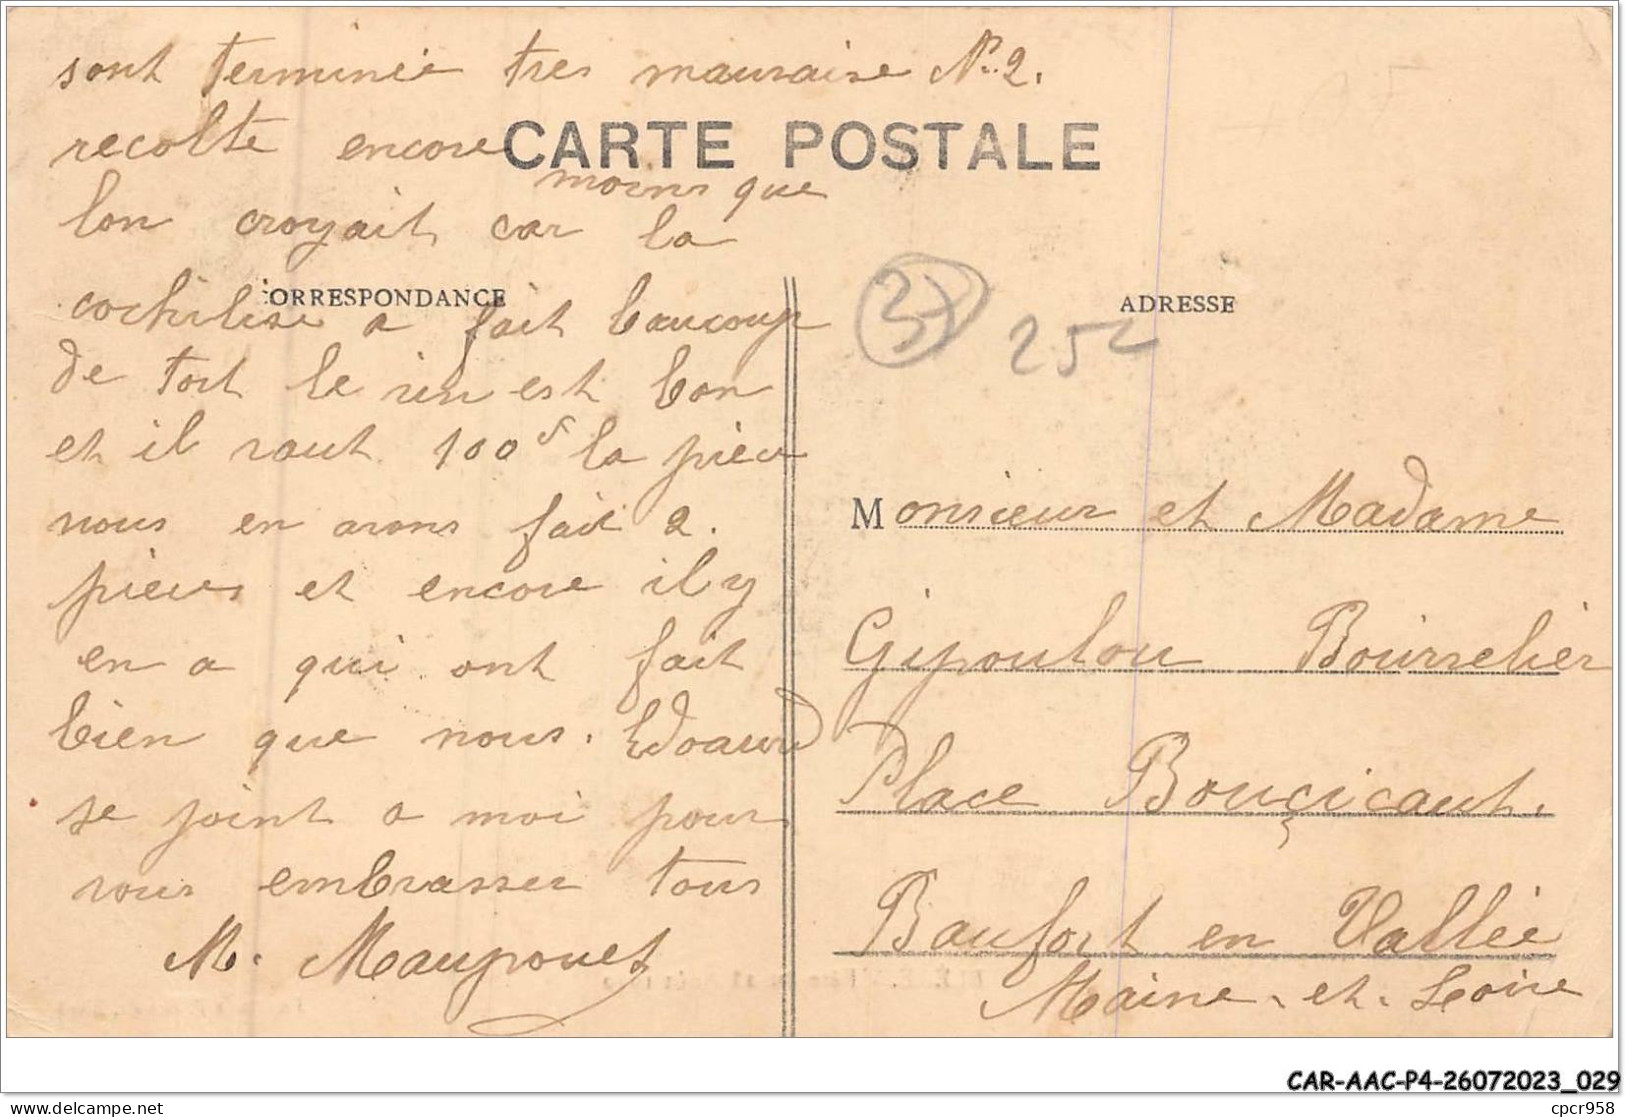 sont terminée tres mauvaise No 2.
recolte encore
CARTE POSTALE
moins que
lon croyait car la
CORRESPONDANCE
cochilise a fait baucoup
de tort le vin est bon
et il vaut 100f la pièce
nous en avons fait 2.
pieces et encore il y
en a qui ont fait
bien que nous. Edoaurd
se joint a moi pour
vous embrasser tous
M. Maupouet
37 252
ADRESSE
Monsieur et Madame
Gipoulou Bourrelier
Place Bouçicaut.
Baufort en Vallée
Maine-et-Loire
CAR-AAC-P4-26072023_029
delcampe.net
cpcr958